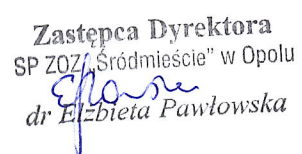 Zastępca Dyrektora
SP ZOZ „Śródmieście” w Opolu
dr Elżbieta Pawłowska